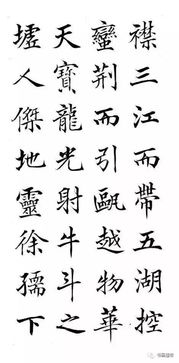 襟三江而帶五湖控
蠻荆而引甌越物華
天寶龍光射牛斗之
墟人傑地靈徐孺下